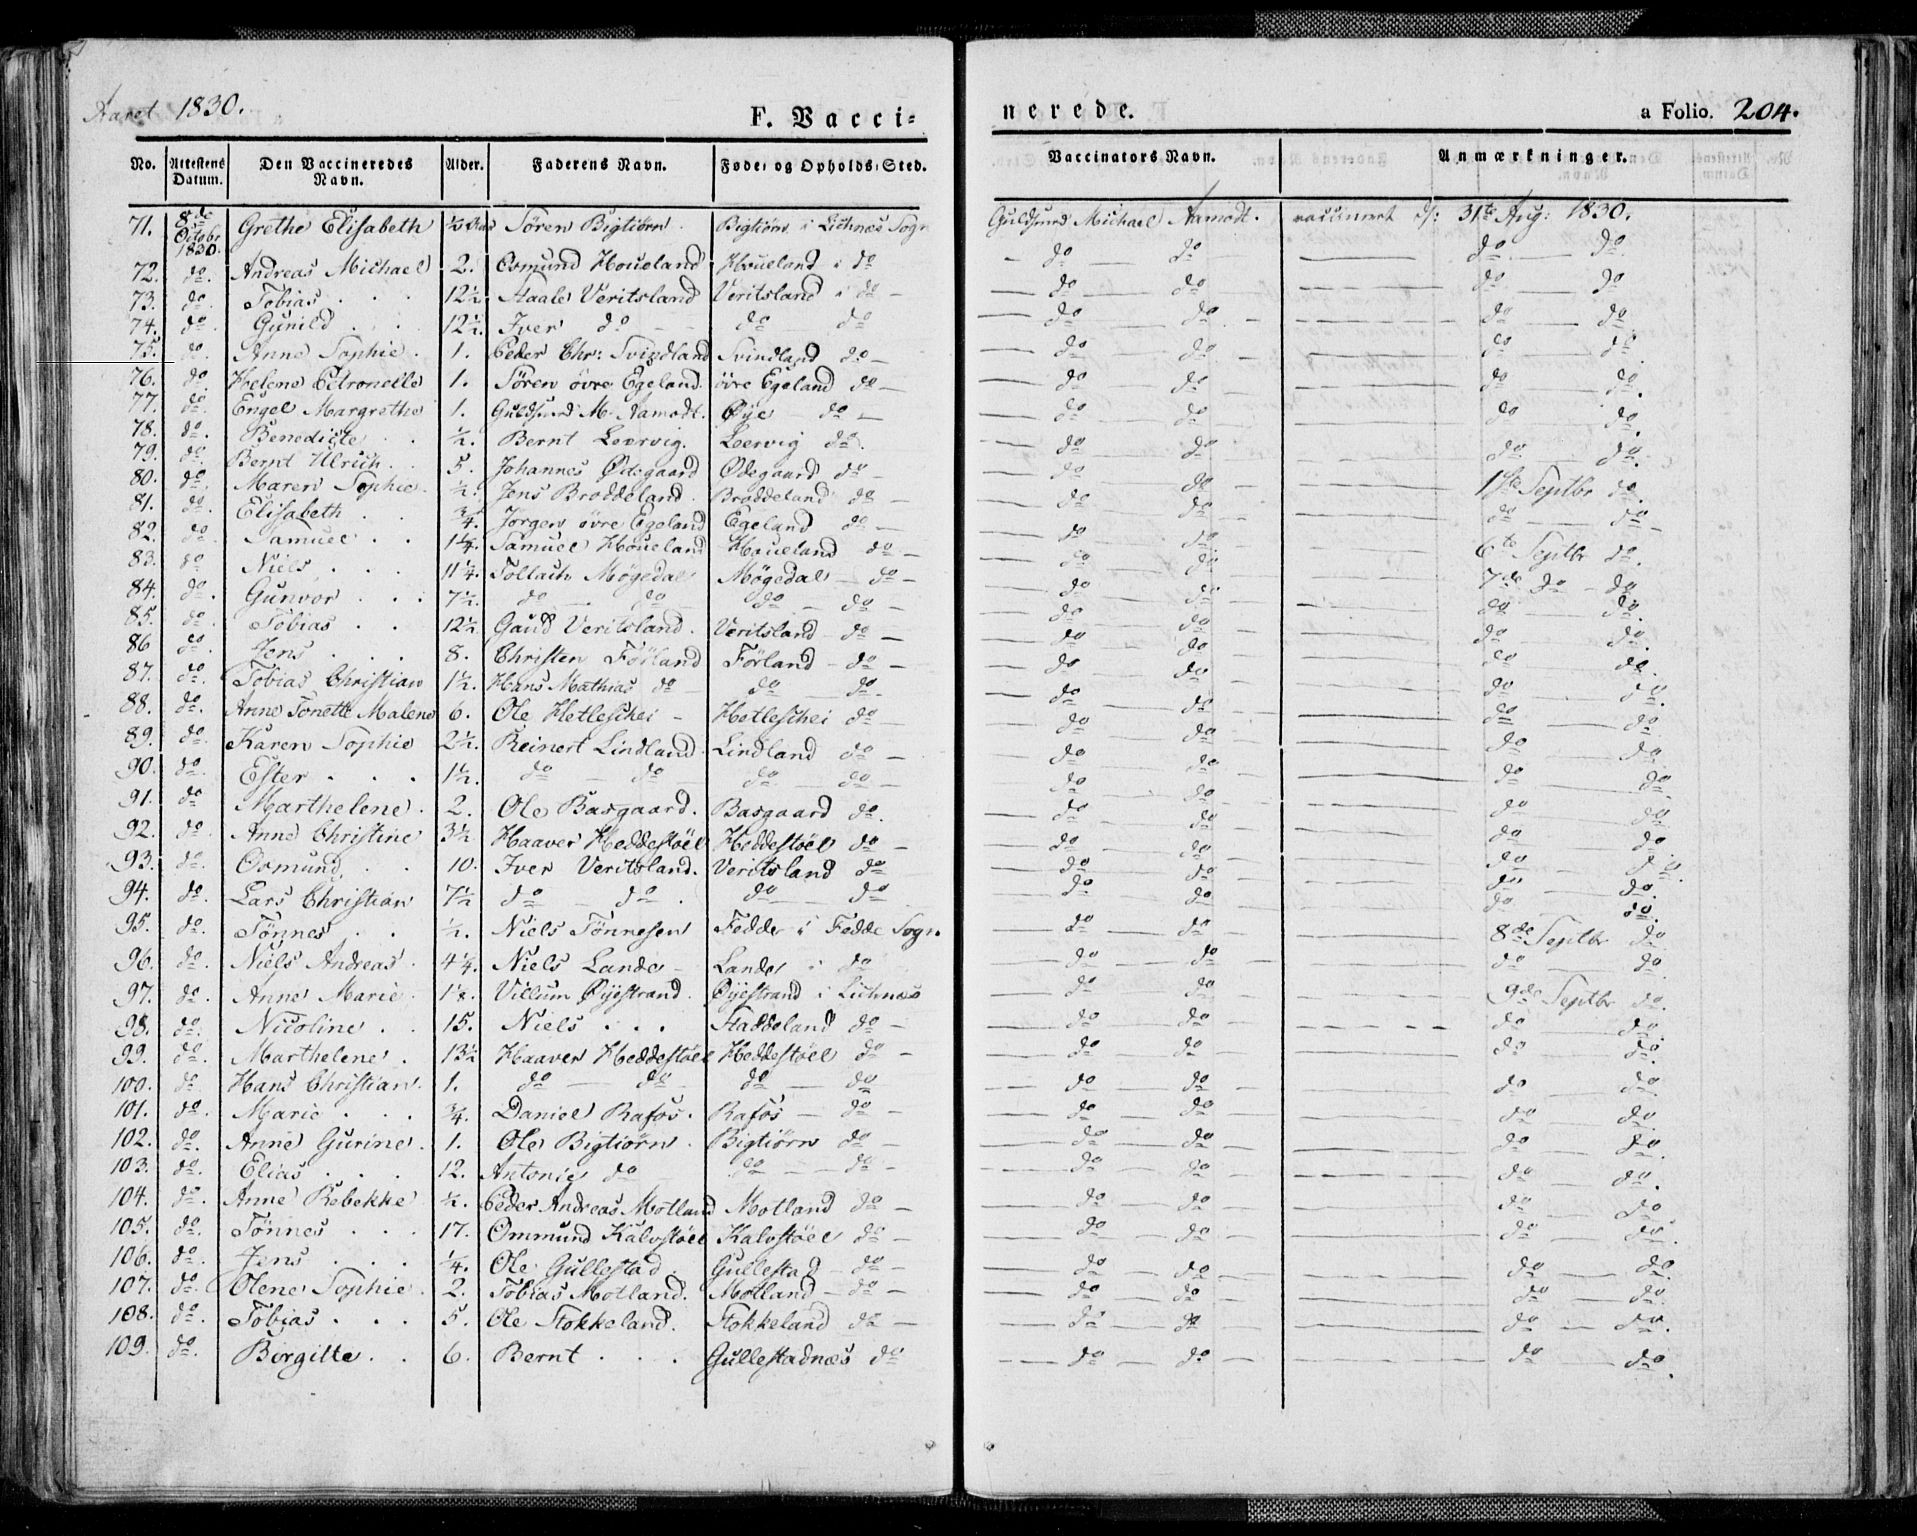 Aaret 1830.
F. Vacci=
nerede.
a Folio. 204.
No. | Attestens Datum. | Den Vaccineredes Navn. | Alder. | Faderens Navn. | Føde- og Opholds-Sted. | Vaccinators Navn. | Anmærkninger.
71. 8de Octobr 1830. Grethe Elisabeth ½ Sören Bigtiörn. Bigtiörn i Lichnæs Sogn Michael Aamodt. vaccineret d: 31te Aug: 1830.
72. do. Andreas Michael 2. Osmund Houeland Houeland i do — do — do — do — do
73. do. Tobias . . . 12½ Staale Veritsland Veritsland i do — do — do — do — do
74. do. Gunild . . . 12½. Iver do — — do do — do — do — do — do.
75. do. Anne Sophie. 1. Peder Chr: Svindland Svindland do — do — do — do — do.
76. do. Helene Petronelle 1. Sören övre Egeland. övre Egeland do — do — do — do — do.
77. do. Engel Margrethe 1. M. Aamodt. Øye do — do — do — do — do.
78. do. Benedicte . . ½. Bernt Leervig. Leervig do. — do — do — do — do.
79. do. Bernt Ulrich . . 5. Johannes Ødegaard Ødegaard do — do — do — 1ste Septbr do.
80. do. Maren Sophie. ½. Jens Broddeland. Broddeland do — do — do — do — do —
81. do. Elisabeth . . ¾. Jörgen övre Egeland Egeland do — do — do — 6te Septbr do.
82. do. Samuel . . 1¼. Samuel Houeland Houeland do — do — do — 7de do — do
83. do. Niels . . . 11¼. Tollach Mögedal Mögedal — do — do — do — do — do.
84. do. Gunvor . . . 7½. do — do — do — do — do — do — do — do.
85. do. Tobias . . 12½ Gaud Veritsland. Veritsland — do — do — do — do — do.
86 do. Jens . . . 8. Christen Förland Förland — do — do — do — do — do.
87. do. Tobias Christian 1½. Hans Mathias do — do — do. — do — do — do — do
88. do. Anne Tonette Malene 6. Ole Hetleschei — Hetleschei do — do — do — do — do.
89. do. Karen Sophie 2½. Reinert Lindland. Lindland do — do — do — do — do.
90. do. Ester . . . 1½. do — do do — do — do — do — do — do.
91. do Marthelene. 2. Ole Basgaard. Basgaard do. — do — do — do — do
92. do. Anne Christine 3½ Haaver Heddestöel Heddestöel do — do — do — do — do.
93. do. Osmund . . 10. Iver Veritsland. Veritsland do — do — do — do — do.
94. do. Lars Christian 7½ do — do. do do — do — do — do — do.
95. do. Tönnes . . ½. Niels Tönnesen Fedde i Fedde Sogn — do — do — 8de Septbr do
96. do. Niels Andreas. 4¼. Niels Lande — Lande i do — do — do — do — do.
97. do. Anne Marie. 1⅛. Villum Øyestrand. Øyestrand i Lichnæs — do — do — 9de Septbr do.
98. do. Nicoline . . 15. Niels . . . Staddeland do — do — do — do — do.
99. do. Marthelene. 13½ Haaver Heddestöel Heddestöel do — do — do — do — do.
100. do. Hans Christian. 1. do — do do — do — do — do — do — do.
101. do. Marie . . . ¾. Daniel Rafos. Rafos — do — do — do — do — do.
102. do. Anne Gurine. 1. Ole Bigtiörn. Bigtiörn do — do — do — do — do.
103. do. Elias . . . 12. Antonie do do — do — do — do — do — do.
104. do. Anne Rebekke ½. Peder Andreas Motland Motland do — do — do — do — do
105. do. Tönnes . . . 17. Ommund Kalvstöel Kalvstöel do — do — do — do — do.
106. do. Jens . . . ¼. Ole Gullestad. Gullestad — do — do — do — do — do.
107. do. Olene Sophie. 2. Tobias Motland. Motland — do — do — do — do — do.
108. do. Tobias . . . 5. Ole Stokkeland. Stokkeland do — do — do — do — do.
109. do. Birgitte . . 6. Bernt . . . Gullestadnæs do — do — do — do — do.